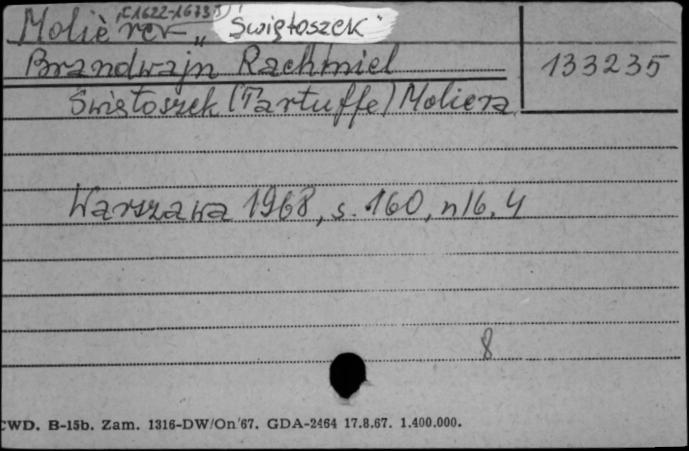 (1622-1673)
Molière „Świętoszek"
Brandwajn Rachmiel 133235
Świętoszek (Tartuffe) Moliera
Warszawa 1968, s. 160, nlb. 4
8
CWD. B-15b. Zam. 1316-DW/On/67. GDA-2464 17.8.67. 1.400.000.